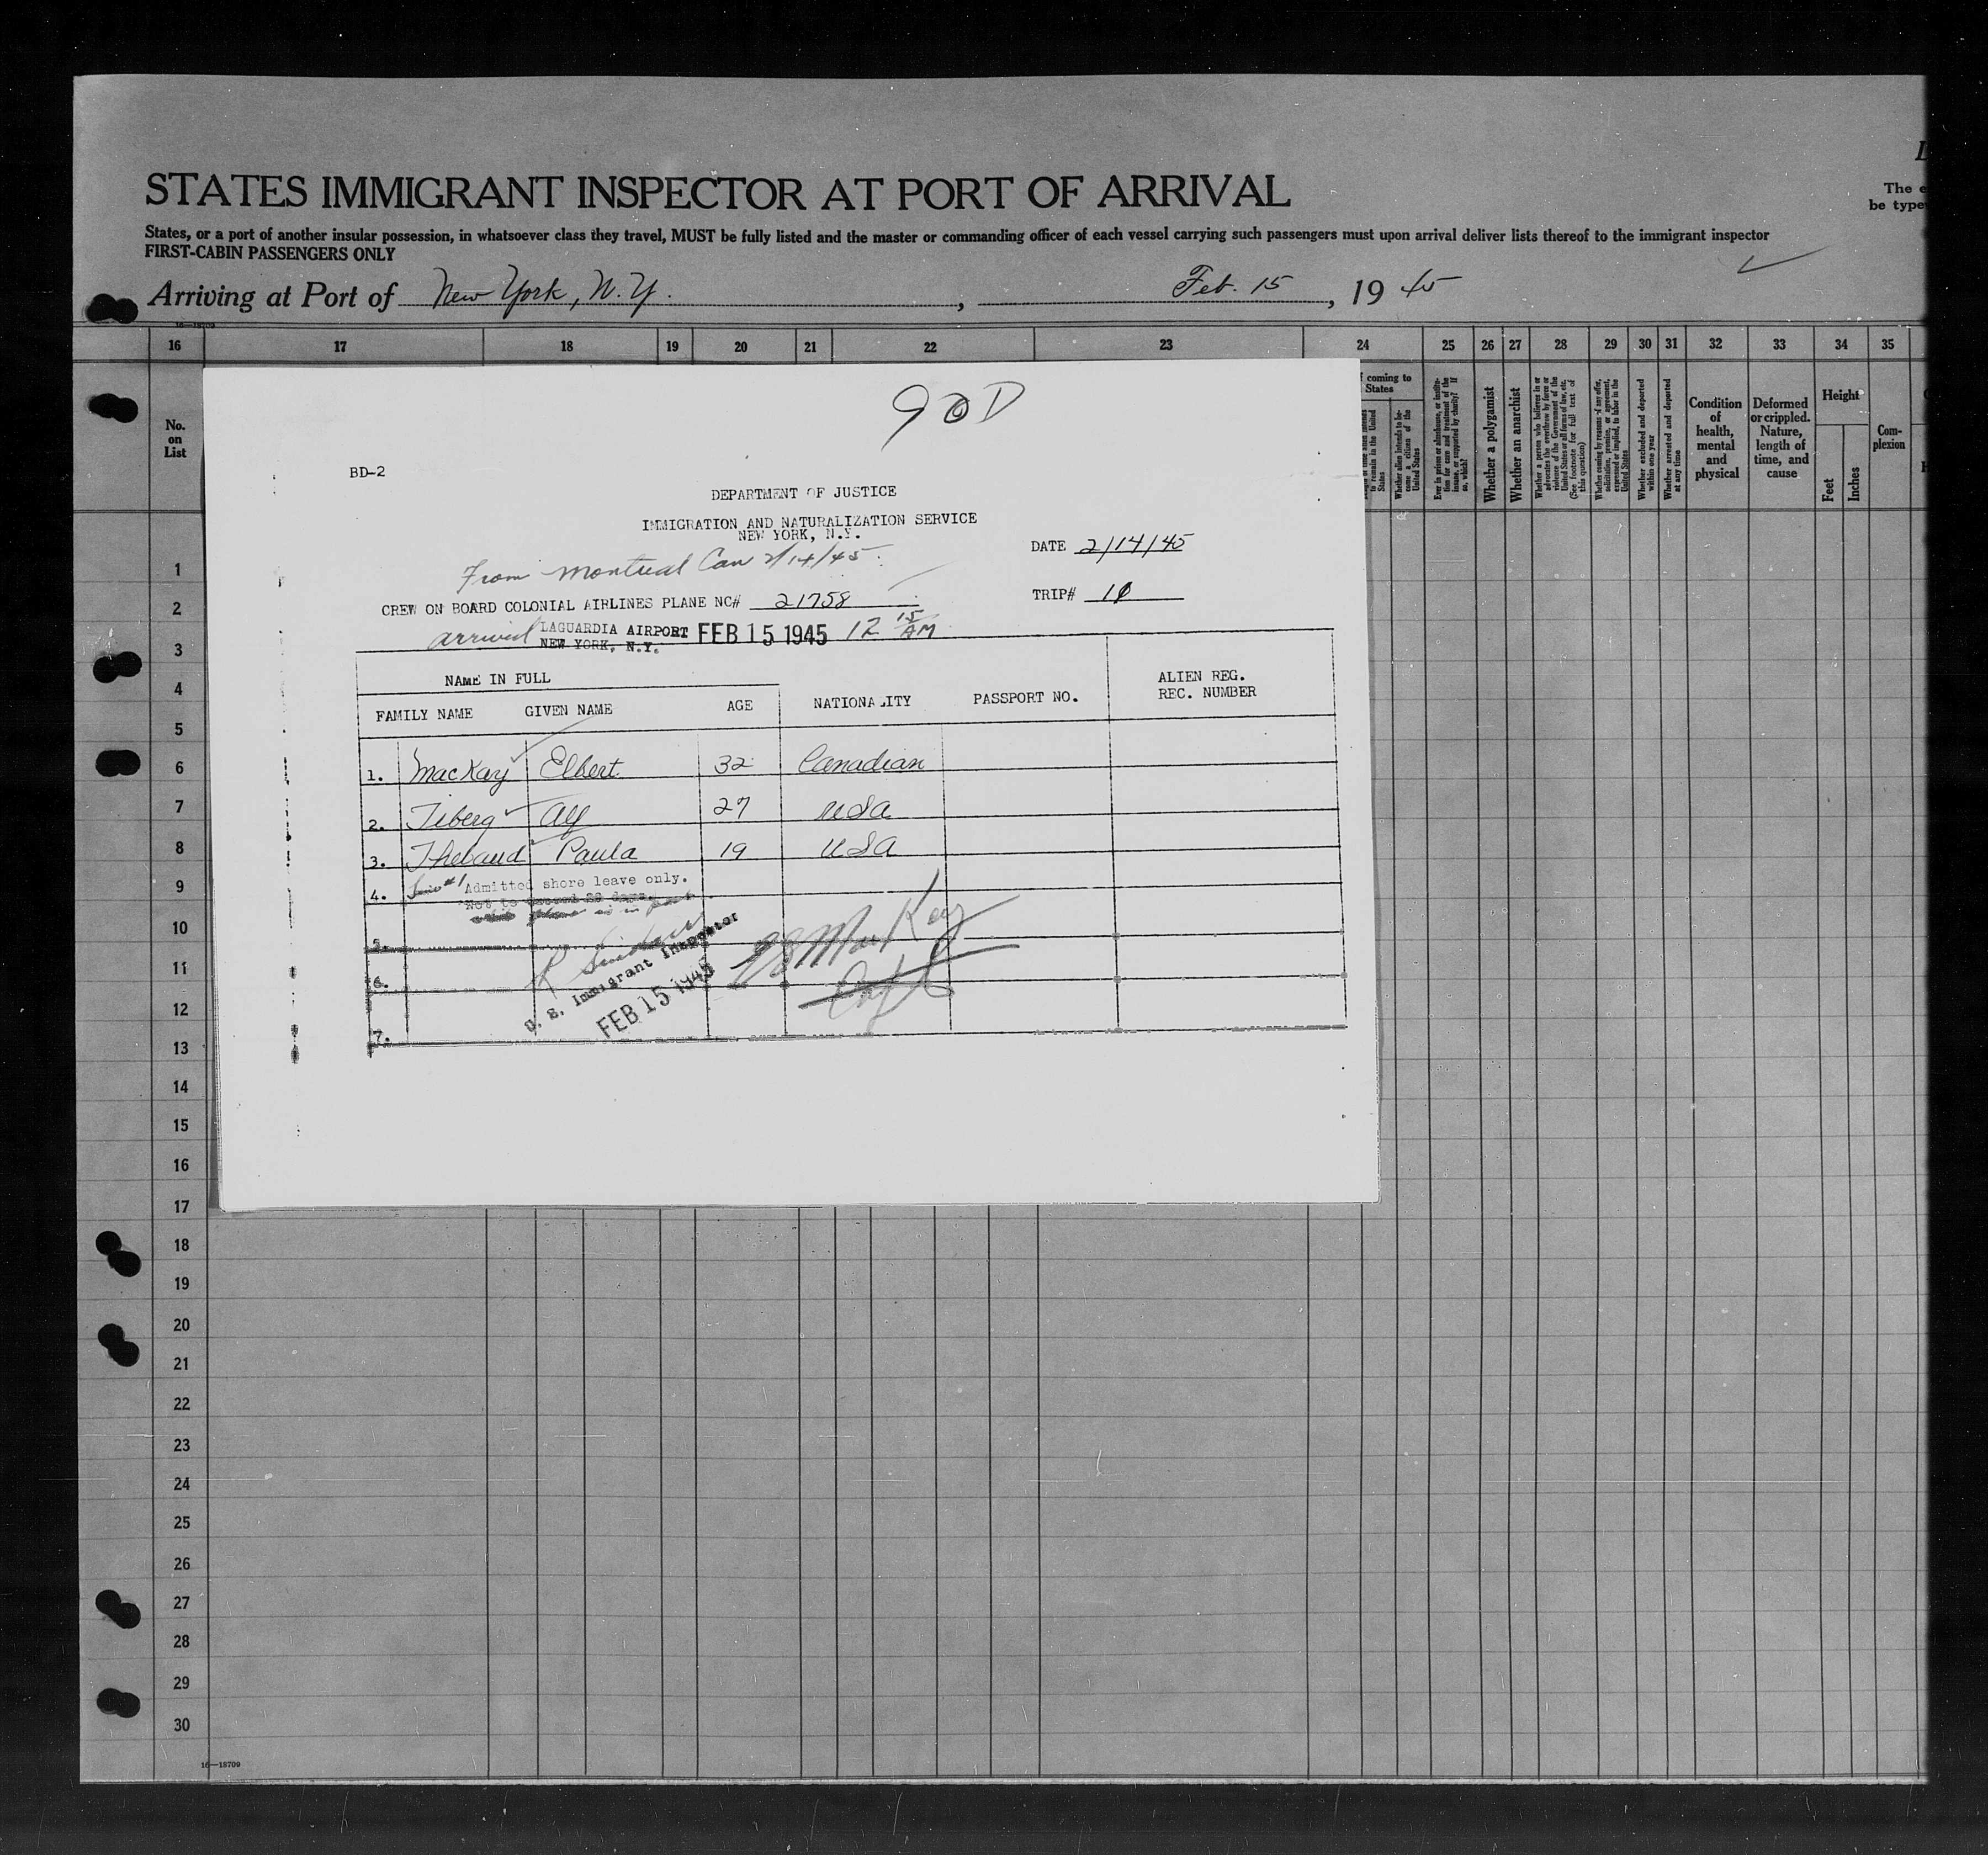 STATES IMMIGRANT INSPECTOR AT PORT OF ARRIVAL
The e
be type
States, or a port of another insular possession, in whatsoever class they travel, MUST be fully listed and the master or commanding officer of each vessel carrying such passengers must upon arrival deliver lists thereof to the immigrant inspector
FIRST-CABIN PASSENGERS ONLY
Arriving at Port of New York, N.Y. , Feb. 15 , 19 45
16—18709
16 17 18 19 20 21 22 23 24 25 26 27 28 29 30 31 32 33 34 35
No. on List
coming to
States
Whether alien intends to become a citizen of the United States
Whether a polygamist
Whether an anarchist
Whether excluded and deported within one year
Whether arrested and deported at any time
Condition of health, mental and physical
Deformed or crippled. Nature, length of time, and cause
Height
Feet
Inches
Com-
plexion
90D
BD-2
DEPARTMENT OF JUSTICE
IMMIGRATION AND NATURALIZATION SERVICE
NEW YORK, N.Y.
DATE 2/14/45
From Montreal Can 2/14/45
TRIP# 10
CREW ON BOARD COLONIAL AIRLINES PLANE NC# 21758
arrived LAGUARDIA AIRPORT FEB 15 1945 12 15 AM
NEW YORK, N.Y.
NAME IN FULL
ALIEN REG.
REC. NUMBER
FAMILY NAME GIVEN NAME AGE NATIONALITY PASSPORT NO.
1. MacKay Elbert 32 Canadian
2. Tiberg Alf 27 USA
3. Thebaud Paula 19 USA
4. Admitted shore leave only.
Not to exceed 29 days.
5.
6.
7.
U. S. Immigrant Inspector
FEB 15 1945
MacKay
Capt
1
2
3
4
5
6
7
8
9
10
11
12
13
14
15
16
17
18
19
20
21
22
23
24
25
26
27
28
29
30
16—18709